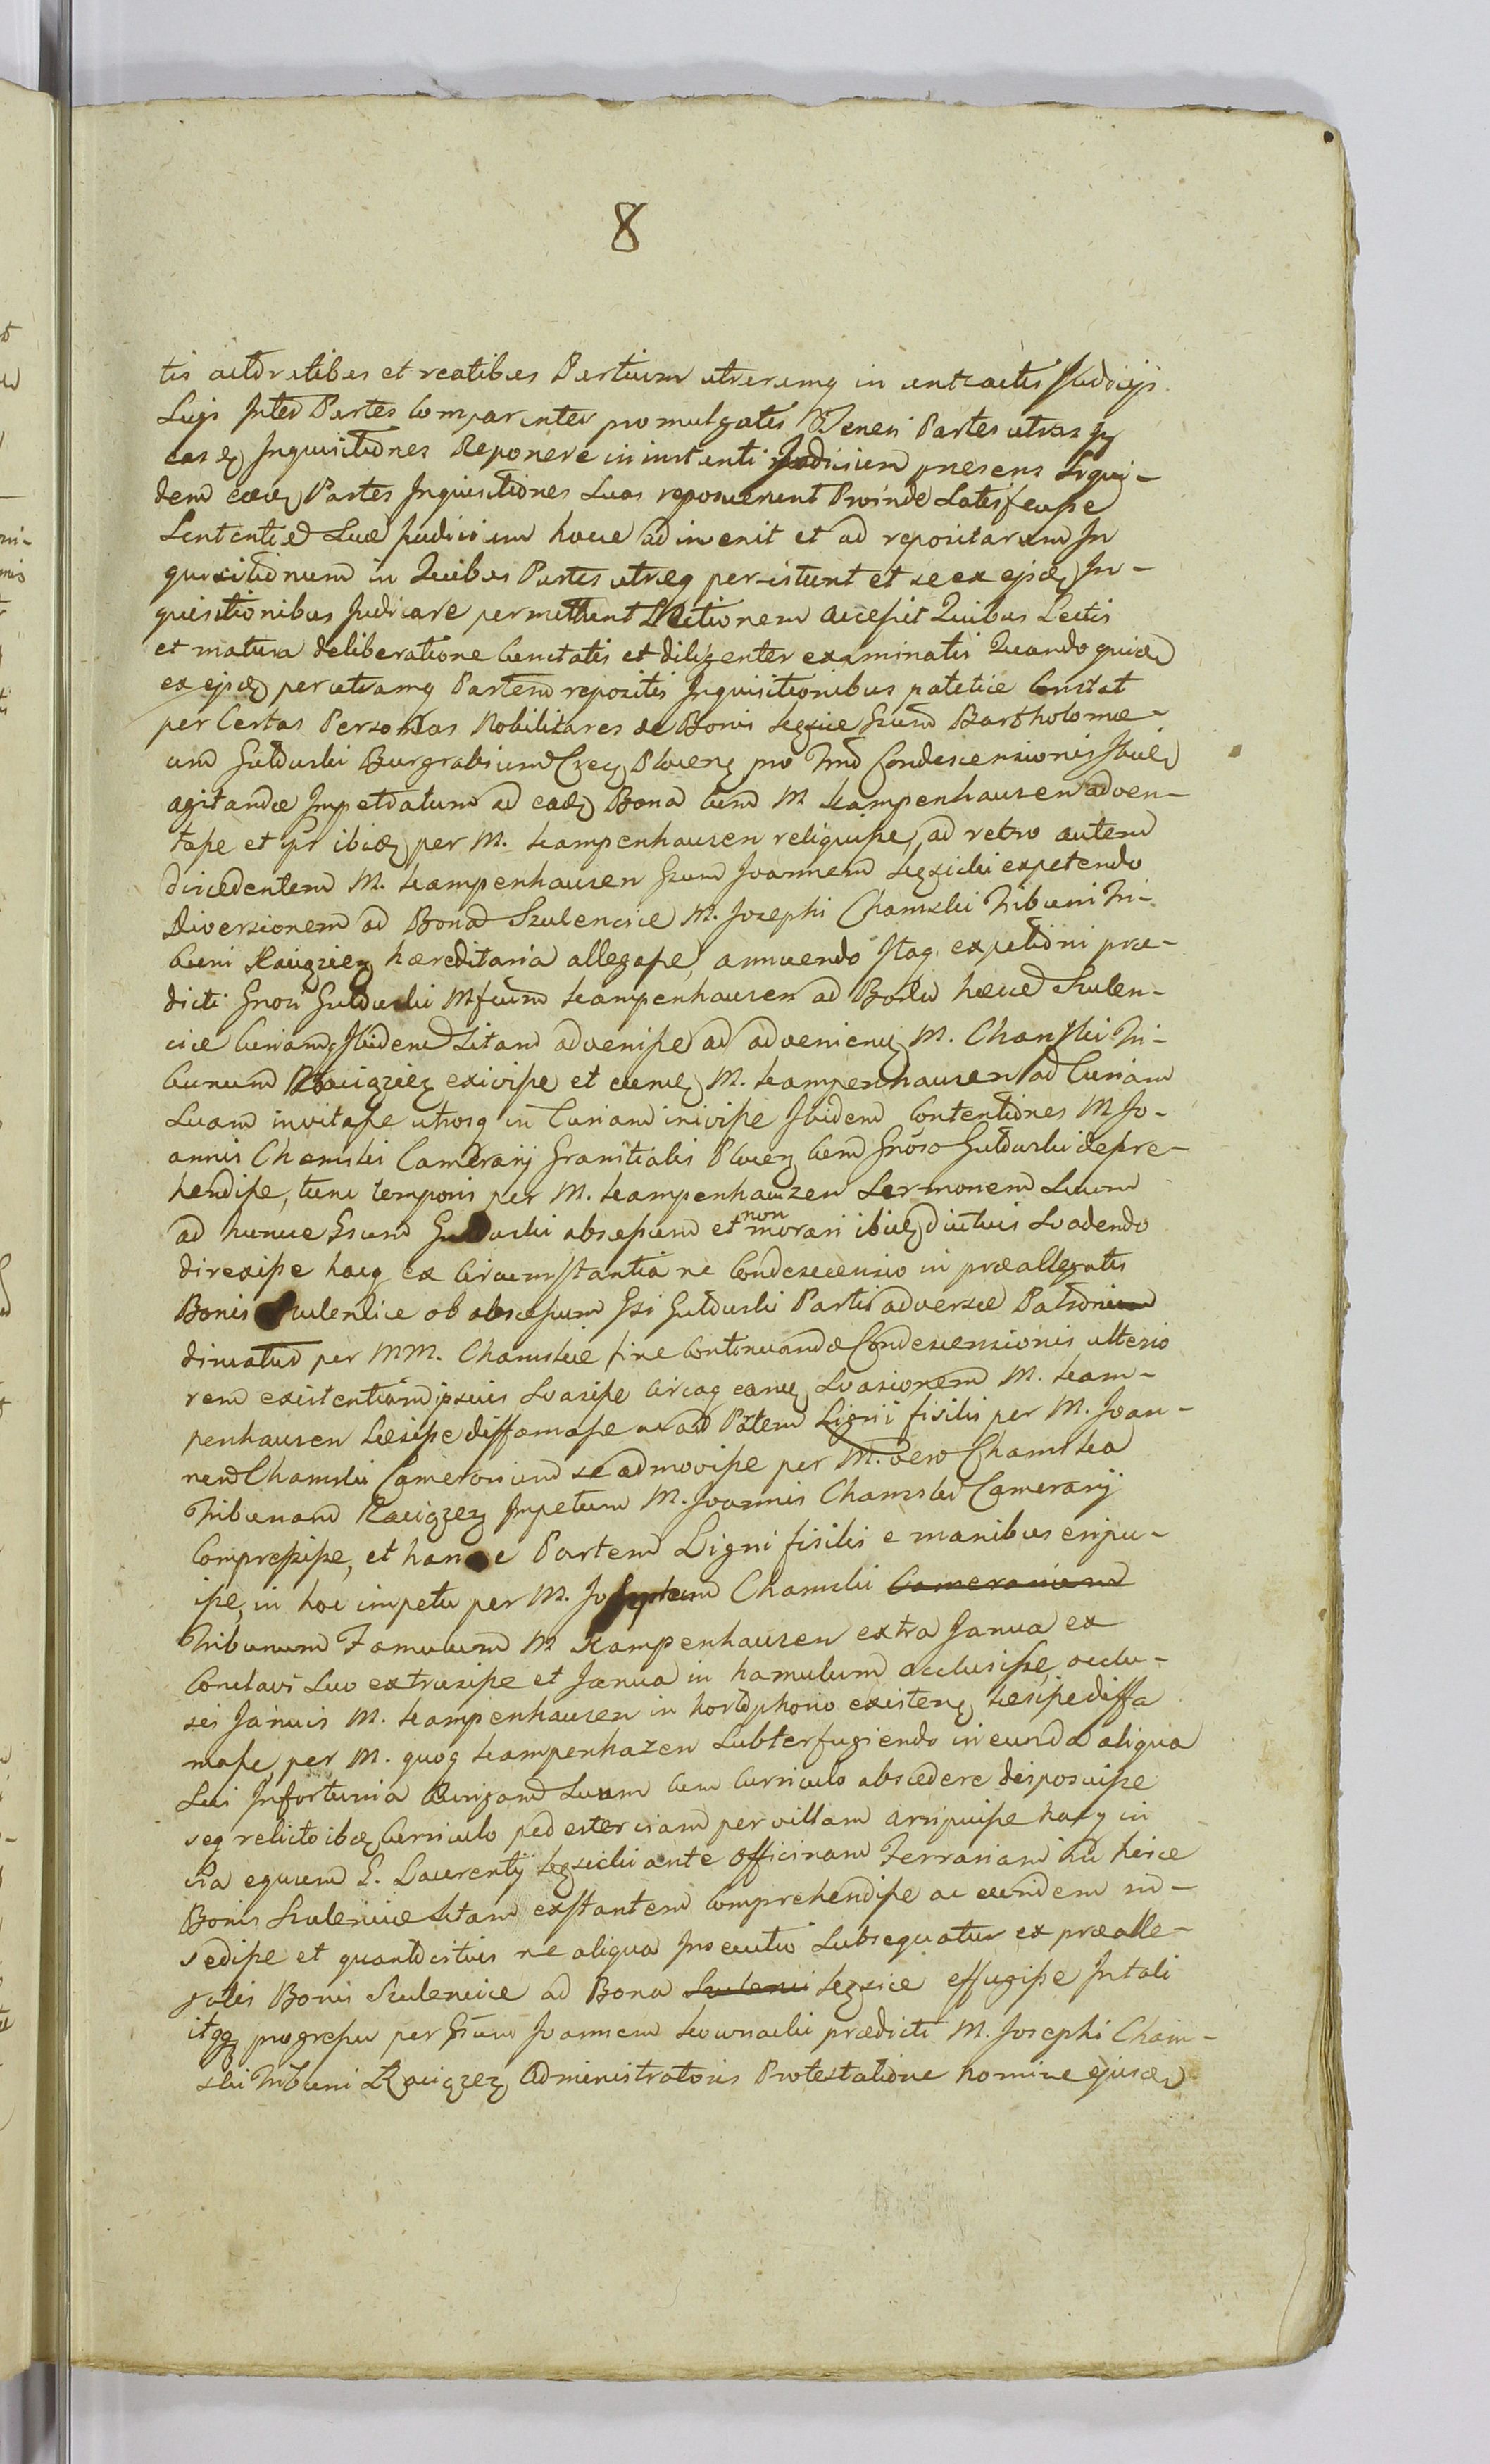 8
tis actoratibus et reatibus Partium utrarumq in anteactis Judicijs
Suijs Inter Partes Comparentes promulgatis Teneri Partes utras
easdq Inquisitiones Reponere in instanti Judicium praesens Siqui-
dem eaeq Partes Inquisitiones Suas reposuerunt Proinde Satisfecisse
Sententiae Suae Judicium hocce adinvenit et ad repositarum In
quisitionum in Quibus Partes utraeq persistunt et se ex ejsdq In-
quisitionibus Judicare permittunt Lectionem accepit Quibus Lectis
et matura deliberatione Cunctatis et diligenter examinatis Quandoquidq
ex ejsdq per utramq Partem repositis Inquisitionibus patetice Constat
per Certas Personas Nobilitares de Bonis Legzice Gsum Bartholomae-
um Gutourski Burgrabium Czeq Ploceng pro Tmo Condescensionis Ibidq
agitandae Impetratum ad eadq Bona Cum M Kampenhausen adven-
tasse et ibidq per M. Kampenhausen reliquisse, ad retro autem
discedentem M. Kampenhausen Gsum Joannem Legzicki expetendo
Diversionem ad Bona Szulencice M. Josephi Chamski Tribuni Tri-
buni Raugzieq haereditaria allegasse, annuendo Itaq expetitioni prae-
dicti Gnosi Gutourski Mfcum Kampenhausen ad Bona haecce Szulen-
cice Curiamq Ibidem Sitam advenisse ad advenienq M. Chamski Tri-
bunum Raugzieq exivisse et eunq M. Kampenhausen ad Curiam
Suam invitasse utrosq in Curiam inivisse Ibidem Contentiones M Jo-
annis Chamski Camerarij Granitialis Ploceq Cum Gnoso Gutourski depre-
hendisse, tunc temporis per M. Kampenhauzen Sermonem Suum
ad huncce Gsum Gutourski abscessum et non morari ibidq diutius Svadendo
direxisse hacq ex Circumstantia ne Condescensio in praeallegatis
Bonis Szulencice ob abscessum Gsi Gutourski Partis adversae Patroni
dimatur per MM. Chamskie fine Continuandae Condescensionis ulterio
rem existentiam ipsius Svasisse Circaq eanq Svasionem M. Kam-
penhausen Laesisse diffamasse ac ad Partem Ligni fisilis per M. Joan-
nem Chamski Camerarium se admovisse per M. vero Chamska
Tribunam Raugzeq Impetum M. Joannis Chamski Camerarij
Compressisse, et hance Partem Ligni fisilis e manibus eripu-
isse, in hoc impetu per M. Josephum Chamski Camerarium
Tribunum Famulum M Kampenhausen extra Janua ex
Conclavi Suo extrusisse et Janua in hamulum occlusisse, occlu-
sis Januis M. Kampenhausen in hortophono existenq Laesisse diffa
masse, per M. quoq Kampenhazen Subterfugiendo in eunda aliqua
Sui Infortunia Aurigam Suum Cum Curriculo abscedere disposuisse
seq relicto ibidq Curriculo pedester viam per villam arripuisse hacq in
via equum S. Laurentij Legzicki ante Officinam Ferrariam in hisce
Bonis Szulencice Sitam exstantem Comprehendisse ac eundem in-
sedisse et quantocitius ne aliqua Insecutio Subsequatur ex praealle-
gatis Bonis Szulencice ad Bona Szulenci Legzice effugisse In tali
itqq progressu per Gsum Joannem Kownacki praedicti M. Josephi Cham-
ski Tribuni Raugzeq Administratoris Protestatione nomine ejusdq